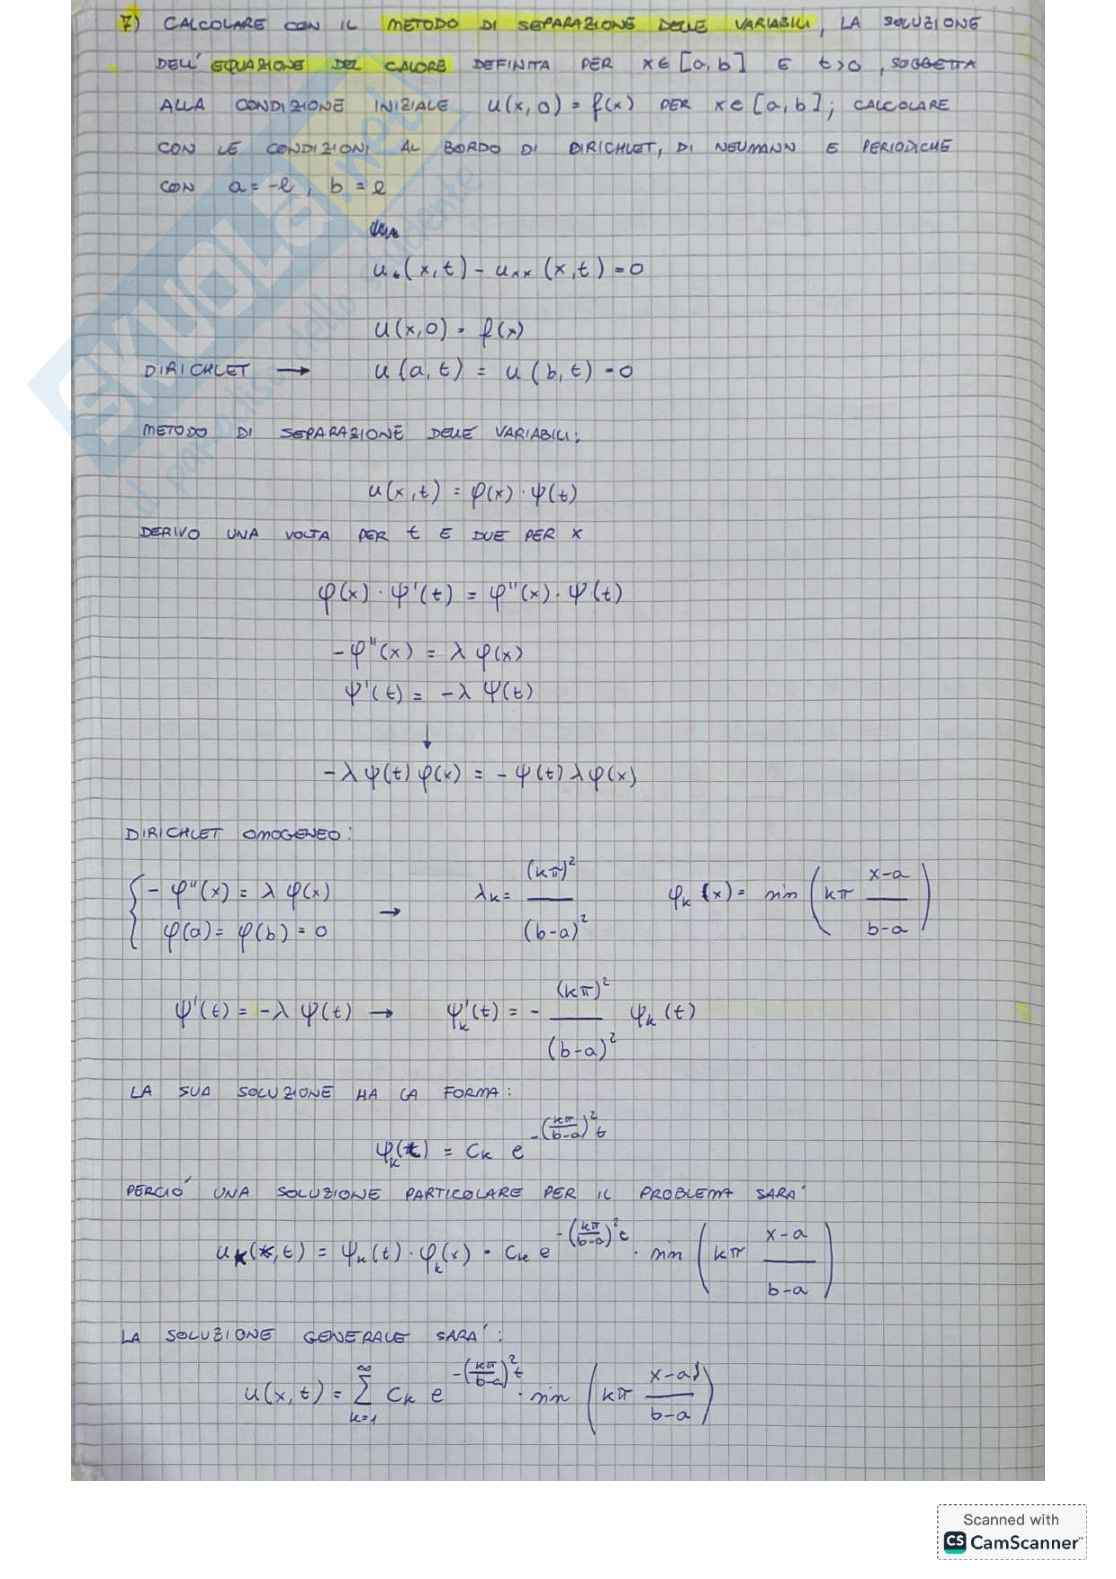 7) CALCOLARE CON IL METODO DI SEPARAZIONE DELLE VARIABILI, LA SOLUZIONE
DELL' EQUAZIONE DEL CALORE DEFINITA PER x∈[a,b] E t>0, SOGGETTA
ALLA CONDIZIONE INIZIALE u(x,0) = f(x) PER x∈[a,b]; CALCOLARE
CON LE CONDIZIONI AL BORDO DI DIRICHLET, DI NEUMANN E PERIODICHE
CON a=-l, b=l
u_t(x,t) - u_xx(x,t) = 0
u(x,0) = f(x)
DIRICHLET → u(a,t) = u(b,t) = 0
METODO DI SEPARAZIONE DELLE VARIABILI;
u(x,t) = φ(x)·ψ(t)
DERIVO UNA VOLTA PER t E DUE PER x
φ(x)·ψ'(t) = φ''(x)·ψ(t)
-φ''(x) = λ φ(x)
ψ'(t) = -λ ψ(t)
↓
-λ ψ(t) φ(x) = -ψ(t) λ φ(x)
DIRICHLET OMOGENEO:
{ -φ''(x) = λ φ(x) φ(a) = φ(b) = 0 → λ_k = (kπ)²/(b-a)² φ_k(x) = sin(kπ (x-a)/(b-a))
ψ'(t) = -λ ψ(t) → ψ_k'(t) = - (kπ)²/(b-a)² ψ_k(t)
LA SUA SOLUZIONE HA LA FORMA:
ψ_k(t) = c_k e^{-(kπ/(b-a))² t}
PERCIÒ UNA SOLUZIONE PARTICOLARE PER IL PROBLEMA SARÀ
u_k(x,t) = ψ_k(t)·φ_k(x) = c_k e^{-(kπ/(b-a))² t} · sin(kπ (x-a)/(b-a))
LA SOLUZIONE GENERALE SARÀ:
u(x,t) = ∑_{k=1}^{∞} c_k e^{-(kπ/(b-a))² t} · sin(kπ (x-a)/(b-a))
SKUOLA.net
il paradiso dello studente
Scanned with
CS CamScanner